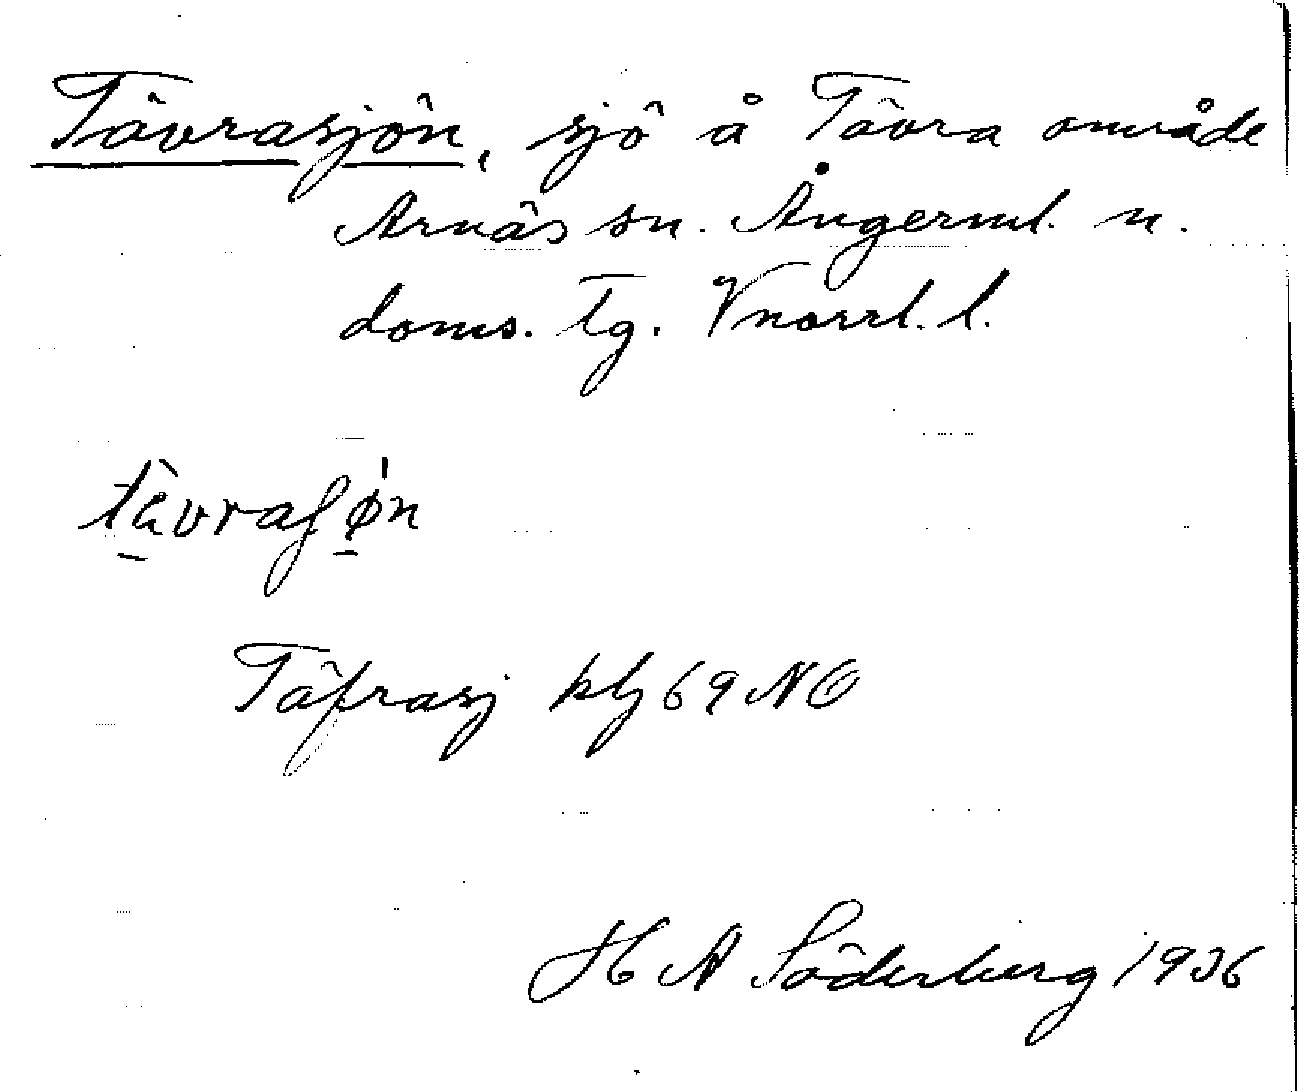 Tävrasjön, sjö å Tävra område
Arnäs sn. Ångerml. n.
doms. Tg. Vnorrl. l.
tä̀vraʃø̍n
Täfrasj kbl 69 NO
H A Söderberg 1936